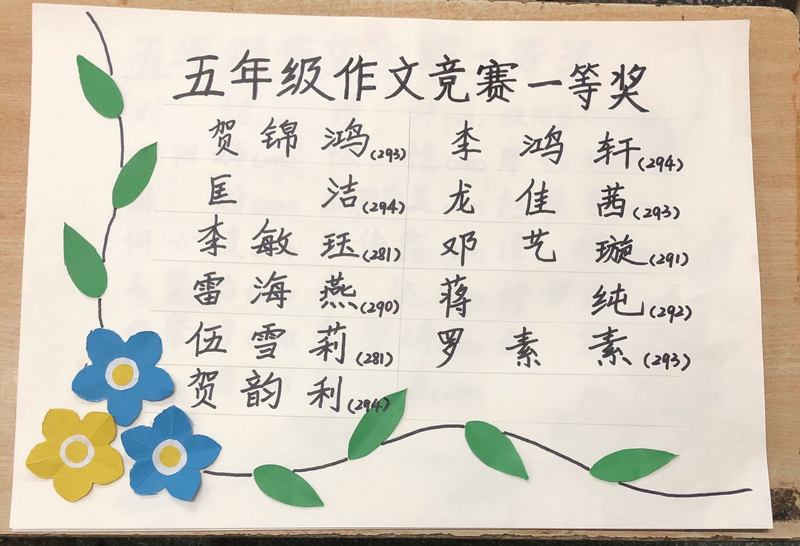 五年级作文竞赛一等奖
贺锦鸿(293) 李鸿轩(294)
匡洁(294) 龙佳茜(293)
李敏珏(281) 邓艺璇(291)
雷海燕(290) 蒋纯(292)
伍雪莉(281) 罗素素(293)
贺韵利(294)